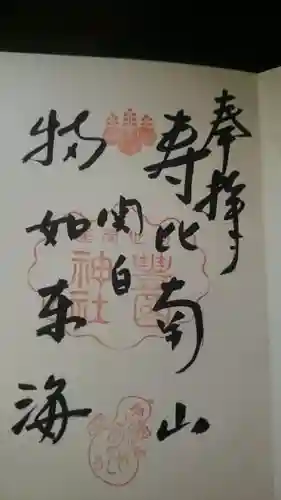 奉拝
寿比南山
関白
福如东海
豊國
神社